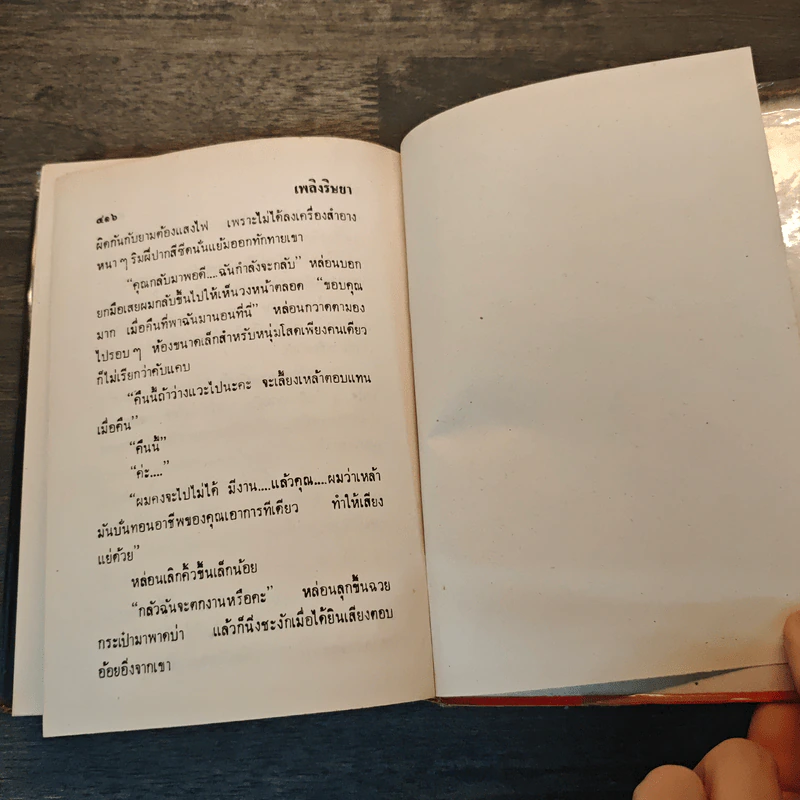 เพลิงริษยา
๔๑๖
ผิดกันกับยามต้องแสงไฟ เพราะไม่ได้ลงเครื่องสำอาง
หนา ๆ ริมฝีปากสีซีดนั่นแย้มออกทักทายเขา
“คุณกลับมาพอดี....ฉันกำลังจะกลับ” หล่อนบอก
ยกมือเสยผมกลับขึ้นไปให้เห็นวงหน้าตลอด “ขอบคุณ
มาก เมื่อคืนที่พาฉันมานอนที่นี่” หล่อนกวาดตามอง
ไปรอบ ๆ ห้องขนาดเล็กสำหรับหนุ่มโสดเพียงคนเดียว
ก็ไม่เรียกว่าคับแคบ
“คืนนี้ถ้าว่างแวะไปนะคะ จะเลี้ยงเหล้าตอบแทน
เมื่อคืน”
“คืนนี้”
“ค่ะ....”
“ผมคงจะไปไม่ได้ มีงาน....แล้วคุณ....ผมว่าเหล้า
มันบั่นทอนอาชีพของคุณเอาการทีเดียว ทำให้เสียง
แย่ด้วย”
หล่อนเลิกคิ้วขึ้นเล็กน้อย
“กลัวฉันจะตกงานหรือคะ” หล่อนลุกขึ้นฉวย
กระเป๋ามาพาดบ่า แล้วก็นิ่งชะงักเมื่อได้ยินเสียงตอบ
อ้อยอิ่งจากเขา